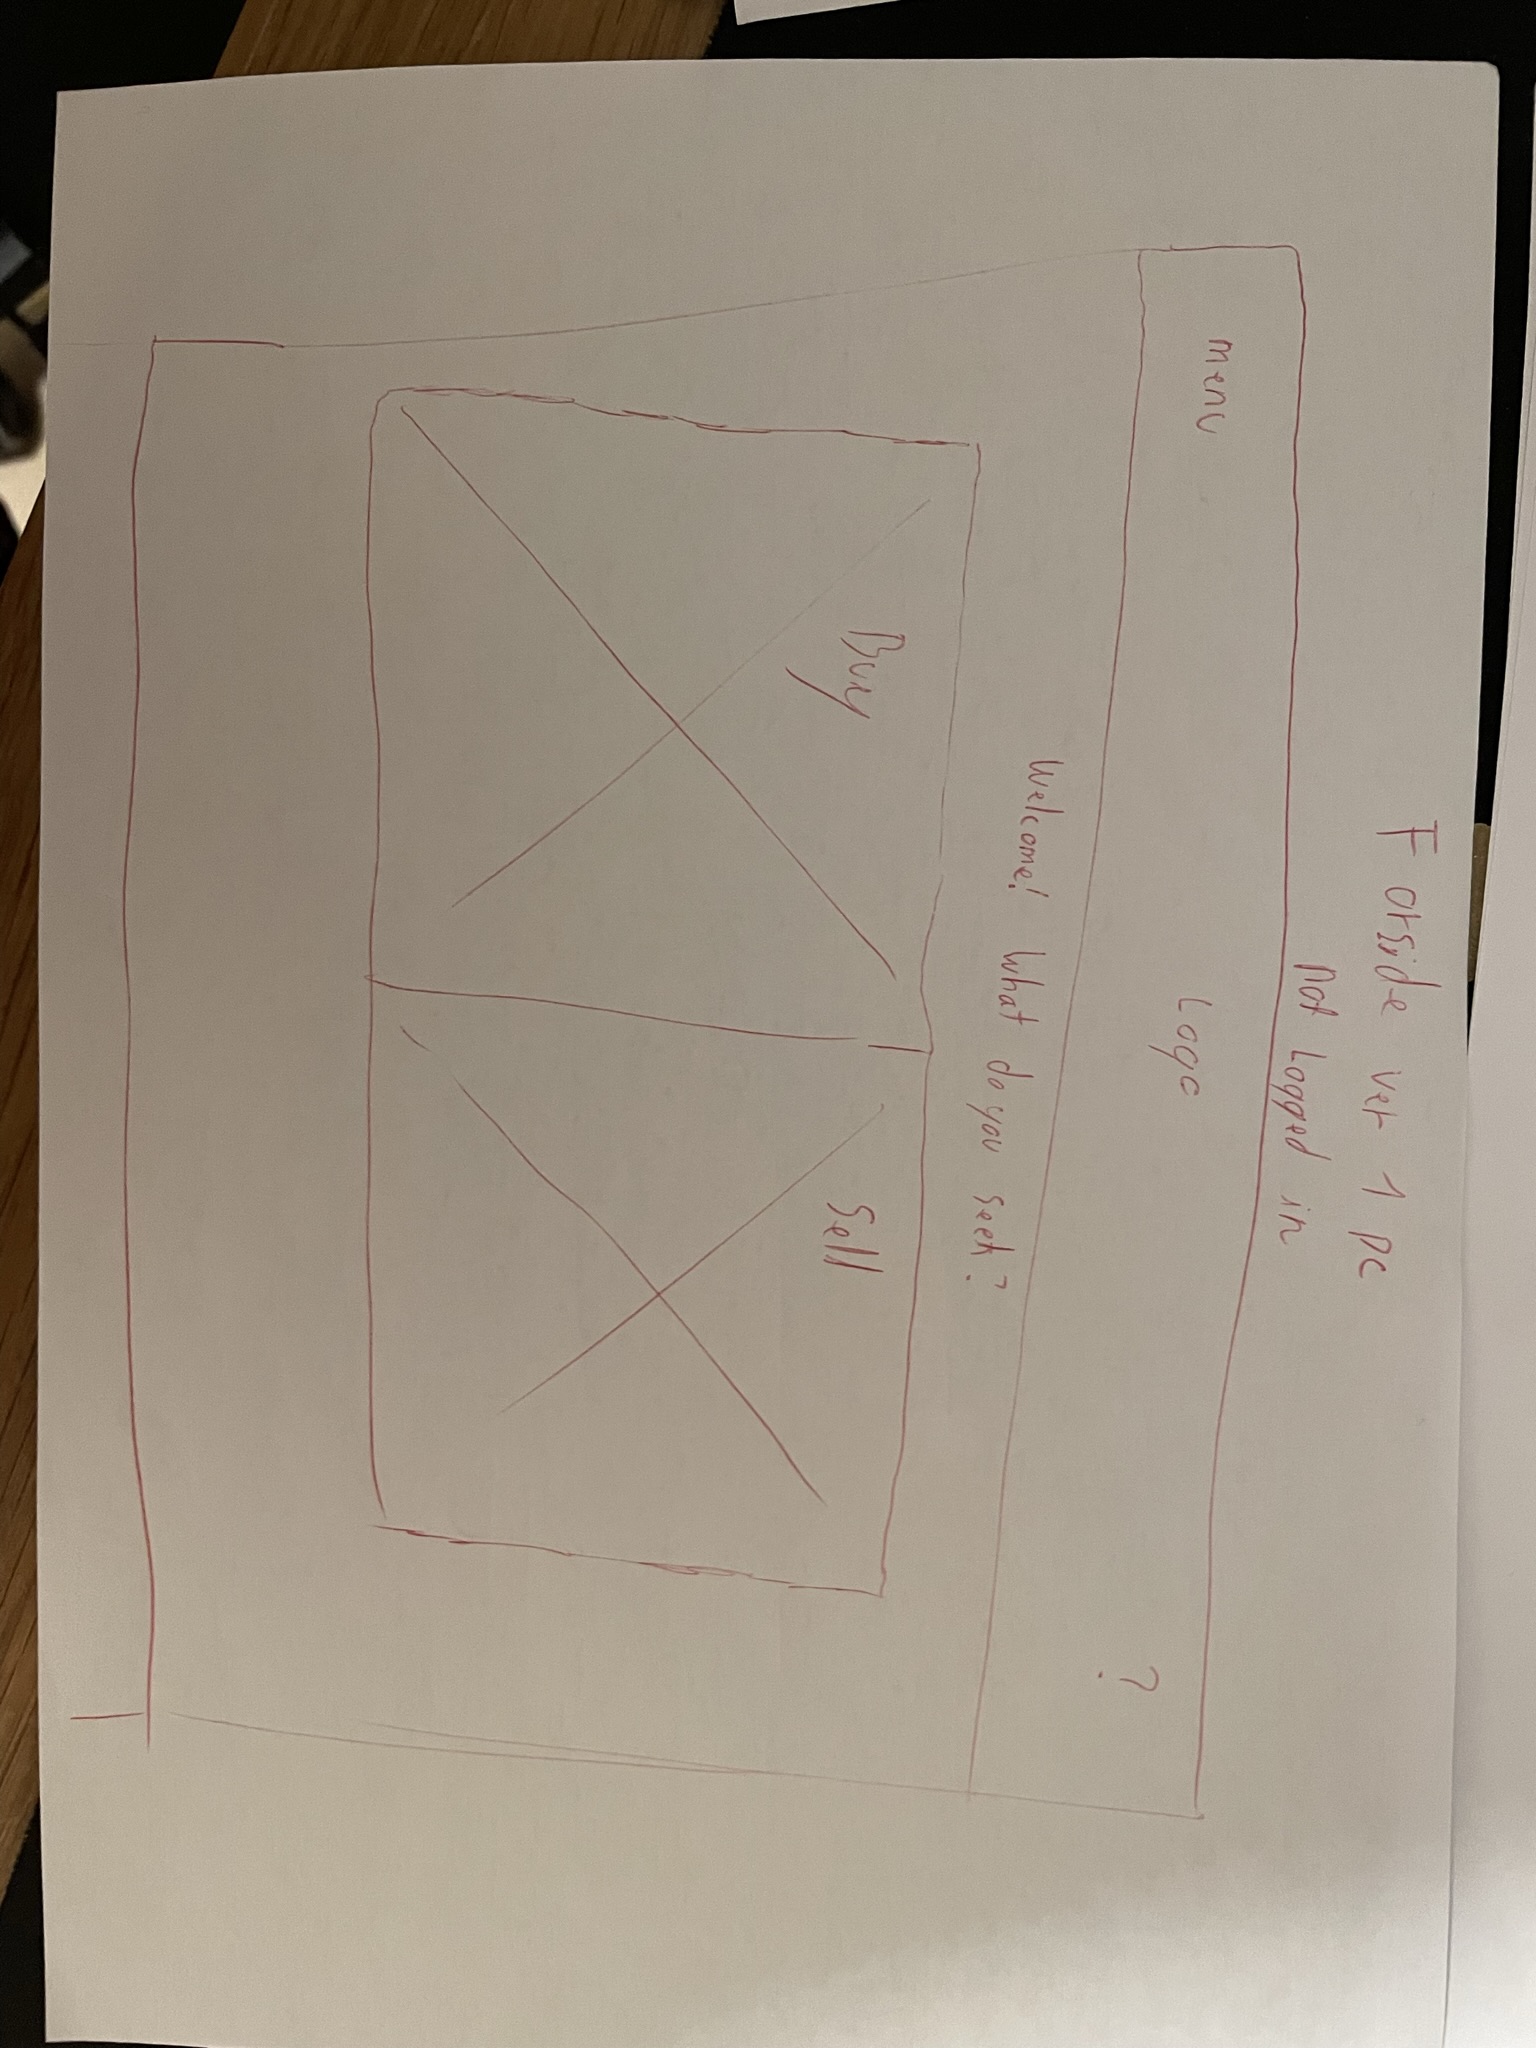 Forside ver 1 pc
not Logged in
menu Logo ?
Welcome! What do you seek?
Buy Sell